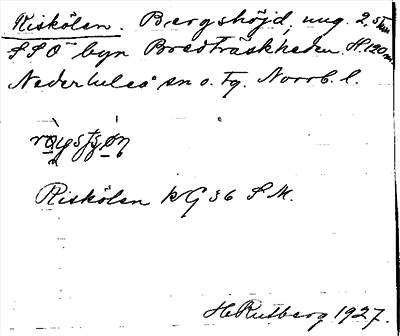 Riskölen. Bergshöjd, ung. 2,5 km
SSO byn Bredträskheden. H. 120 m.
Nederluleå sn o. tg. Norrb. l.
Riskölen kG 36 S M.
H Rutberg 1927.